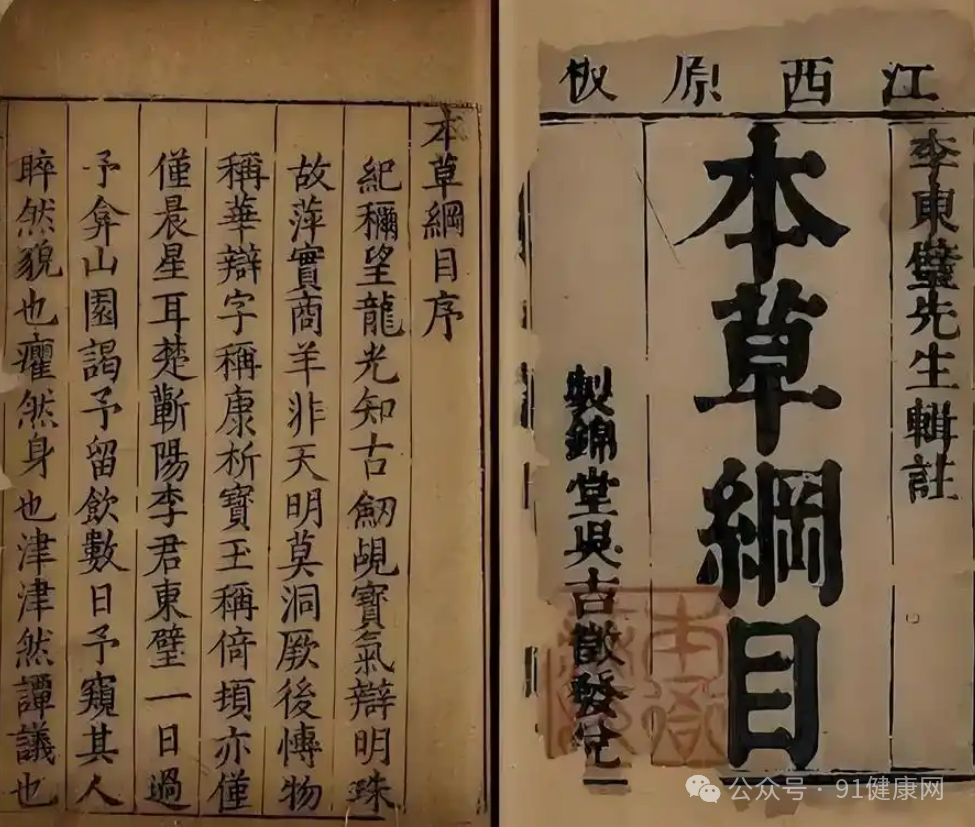 江西原板
李東璧先生輯註
本草綱目
製錦堂吳吉徵發兌
本草綱目序
紀穪望龍光知古劒覘寳氣辯明珠
故萍實商羊非天明莫洞厥後愽物
稱華辯字稱康析寶玉稱倚頓亦僅
僅晨星耳楚蘄陽李君東璧一日過
予弇山園謁予留飲數日予窺其人
睟然貌也癯然身也津津然譚議也
公众号 · 91健康网